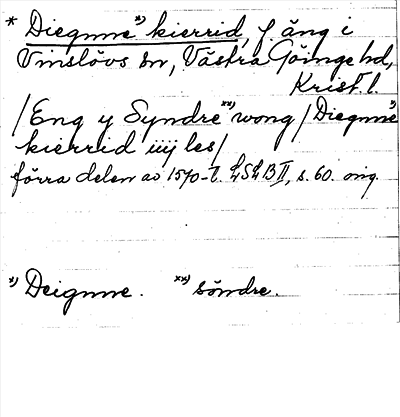 * Diegnne *) kierrid, f. äng i
Vinslövs sn, Västra Göinge hd,
Krist. l.
/Eng y Syndre **) wong / Diegnne *)
kierrid iiij les/
förra delen av 1570-t. LSLB II, s. 60. orig.
*) Deignne. **) söndre.